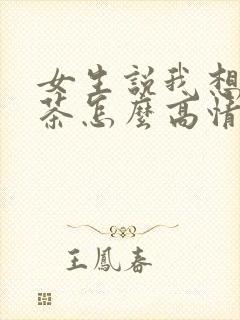 女生說我想
茶怎麼高情
王鳳春